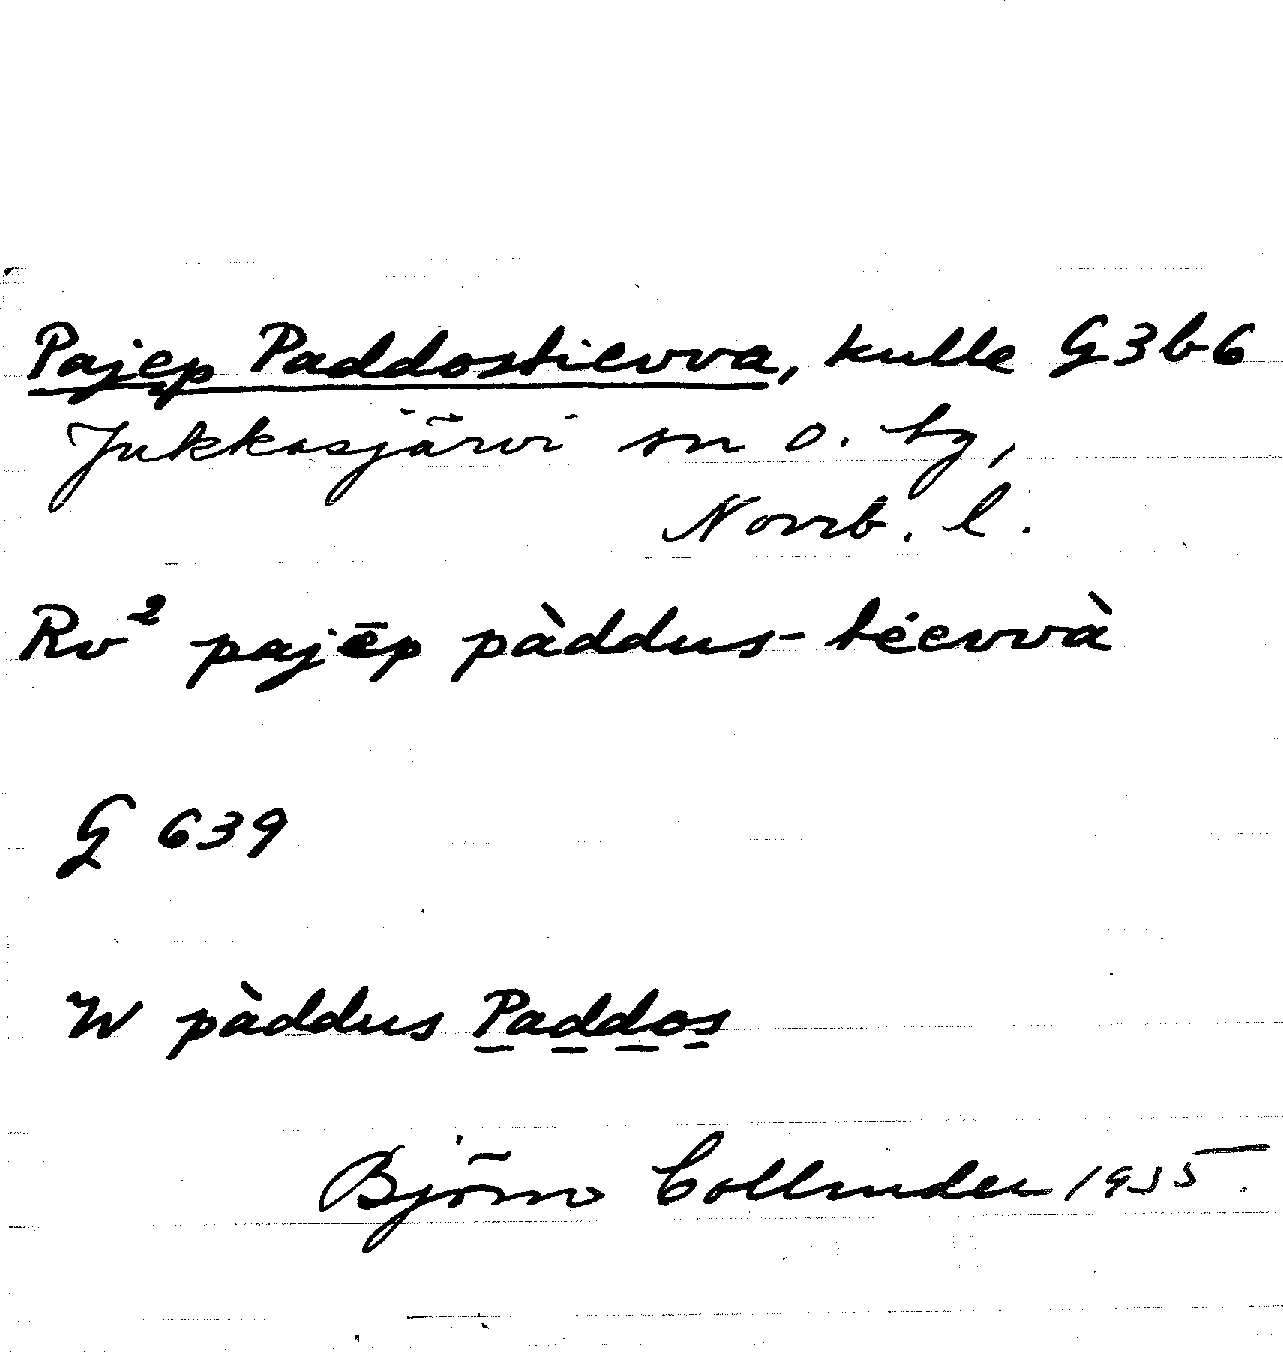 Pajep Paddostievva, kulle G3b6
Jukkasjärvi sn o. tg,
Norrb. l.
Rv² pajēp pàddus-téevvà
G 639
W pàddus Paddos
Björn Collinder 1935.